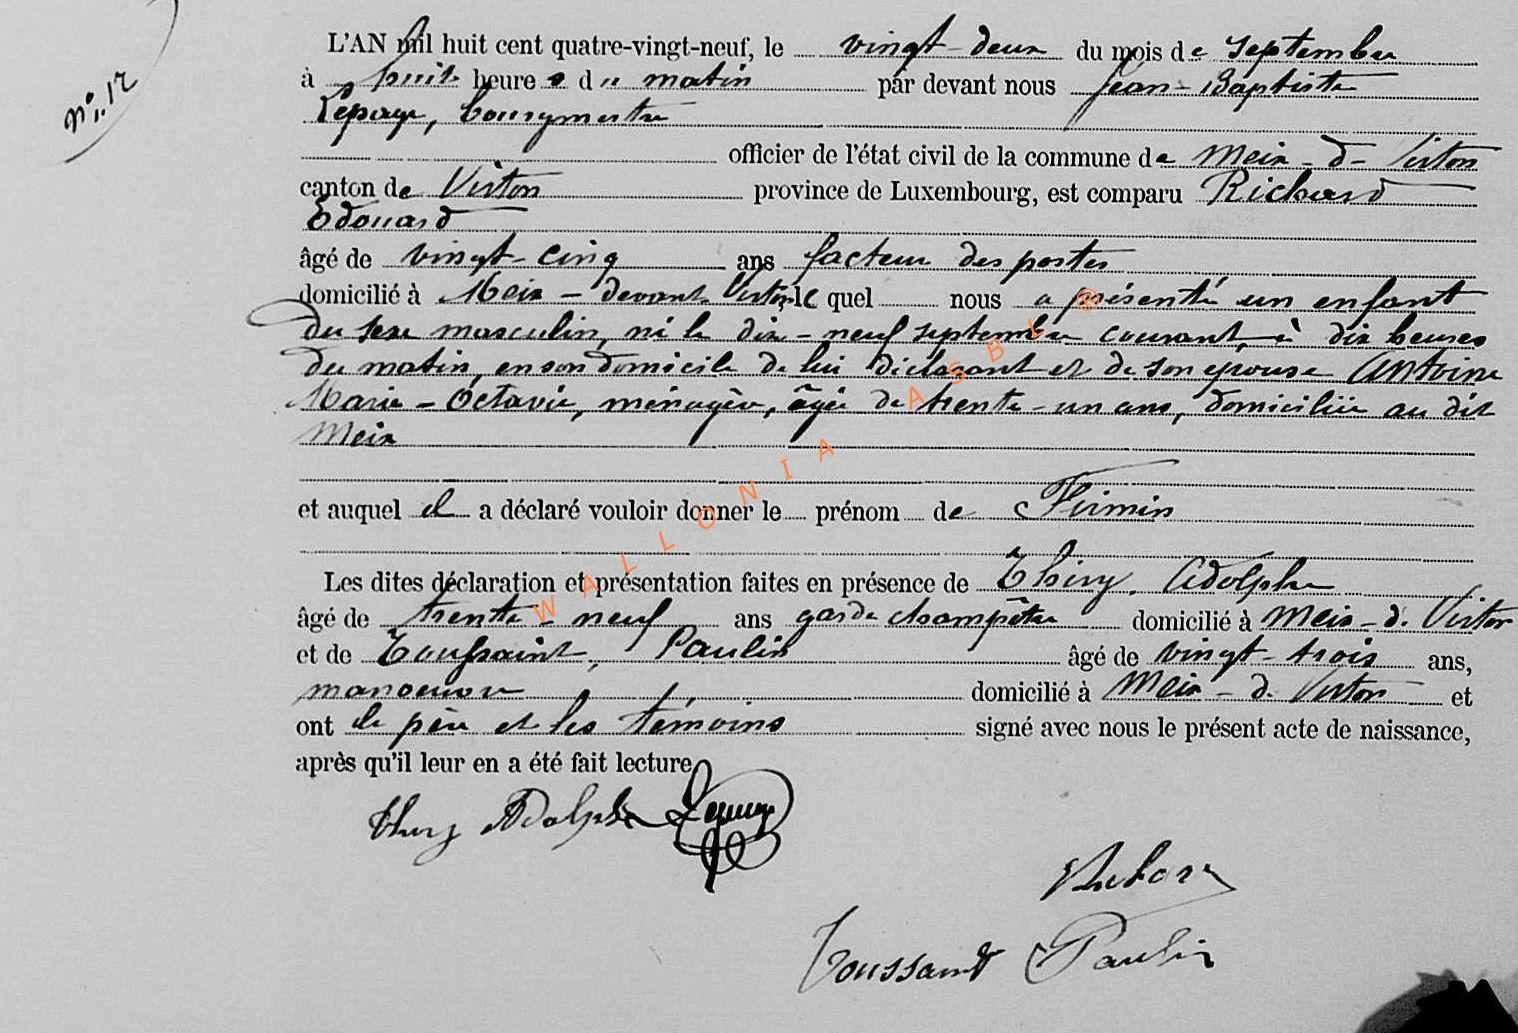 N° 12
L'AN mil huit cent quatre-vingt-neuf, le vingt-deux du mois de septembre
à huit heures du matin par devant nous Jean-Baptiste
Lepage, bourgmestre
officier de l'état civil de la commune de Meix-d-Virton
canton de Virton province de Luxembourg, est comparu Richard
Edouard
âgé de vingt-cinq ans facteur des postes
domicilié à Meix-devant Virton, le quel nous a présenté un enfant
du sexe masculin, né le dix-neuf septembre courant, à dix heures
du matin, en son domicile de lui déclarant et de son épouse Antoine
Marie-Octavie, ménagère, âgée de trente-un ans, domiciliée au dit
Meix
et auquel il a déclaré vouloir donner le prénom de Firmin
Les dites déclaration et présentation faites en présence de Thiry, Adolphe
âgé de trente-neuf ans garde champêtre domicilié à Meix-d. Virton
et de Toussaint, Paulin âgé de vingt-trois ans,
manoeuvre domicilié à Meix-d. Virton et
ont le père et les témoins signé avec nous le présent acte de naissance,
après qu'il leur en a été fait lecture
Thiry Adolphe Lepage
Richard
Toussaint Paulin
WALLONIA ASBL ®